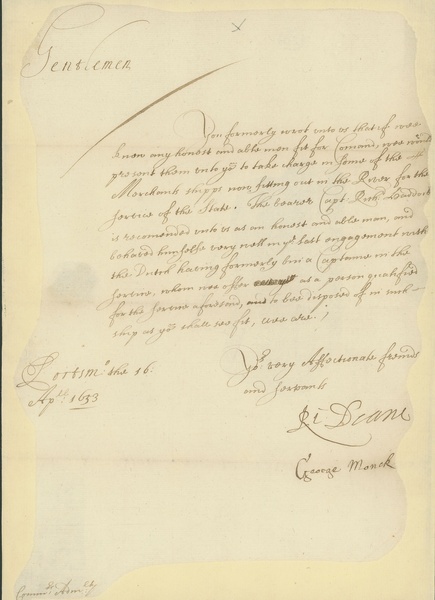 Gentlemen
You formerly wrot vnto us that if wee
knew any honest and able men fit for Comand, wee would
present them vnto yo to take charge in some of the
Merchant shipps now fitting out in the River for the
service of the State. The bearer Capt Rich:
is recomended vnto us as an honest and able man, and
behaved himselfe very well in ye last engagement with
the Dutch having formerly bin a Captaine in the
service, whom wee offer as a person qualified
for the service aforesaid, and to bee disposed of in such
ship as yo shall see fit, wee are /
Yor very Affectionate friends
and servants
Portsmo the 16.
Apll. 1653
Ri Deane
George Monck